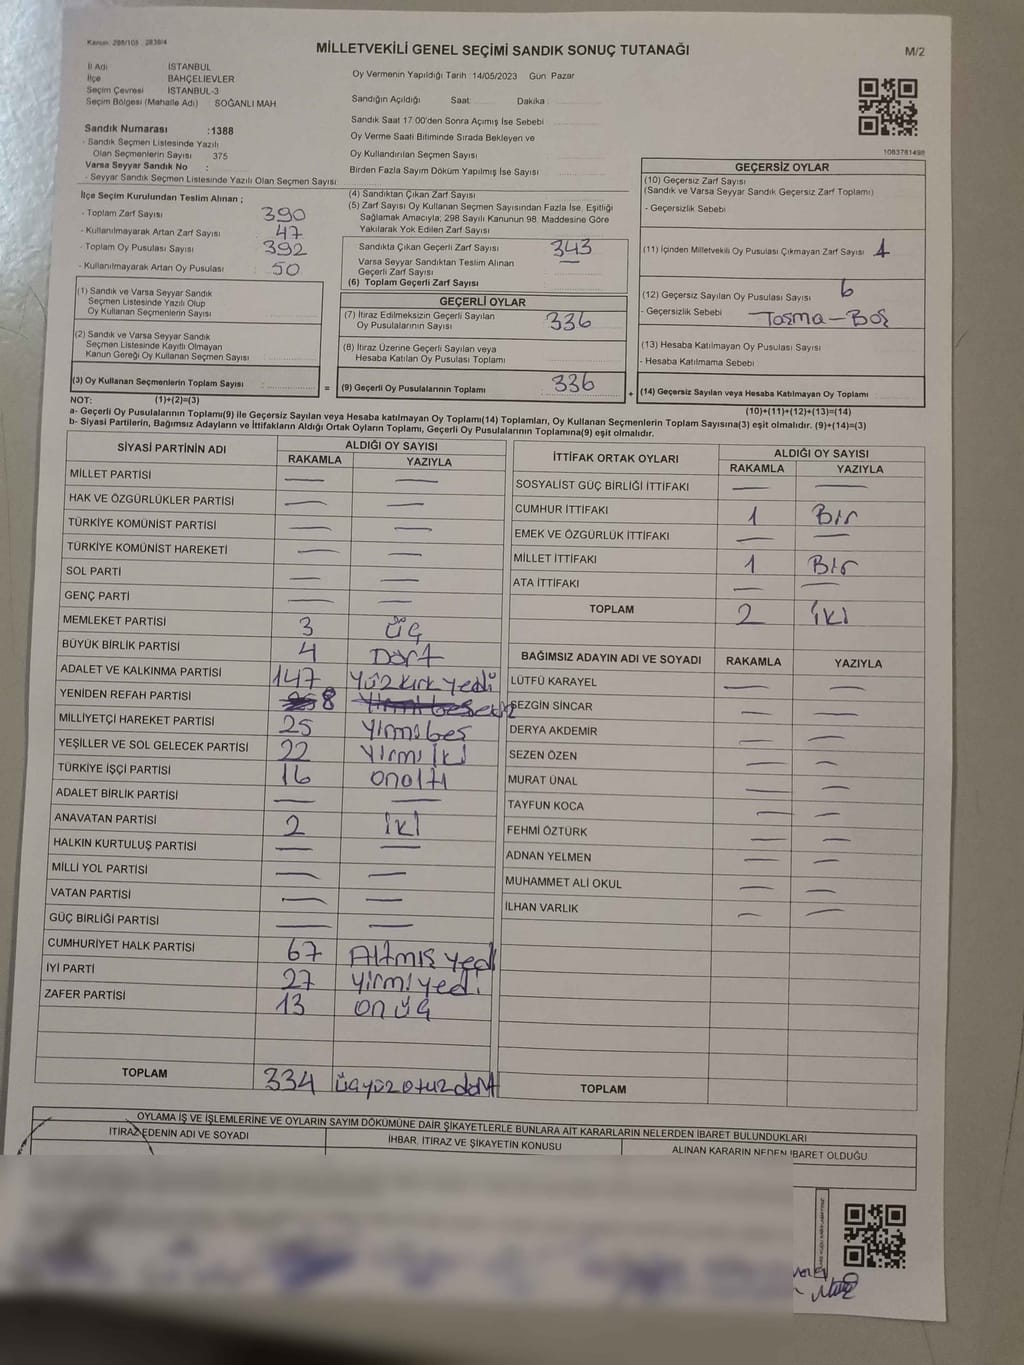 Kanun: 298/105 , 2839/4
MİLLETVEKİLİ GENEL SEÇİMİ SANDIK SONUÇ TUTANAĞI
M/2
İl Adı İSTANBUL
İlçe BAHÇELİEVLER
Seçim Çevresi İSTANBUL-3
Seçim Bölgesi (Mahalle Adı) : SOĞANLI MAH
Sandık Numarası :1388
- Sandık Seçmen Listesinde Yazılı
Olan Seçmenlerin Sayısı 375
Varsa Seyyar Sandık No :
- Seyyar Sandık Seçmen Listesinde Yazılı Olan Seçmen Sayısı:
Oy Vermenin Yapıldığı Tarih :14/05/2023 Gün Pazar
Sandığın Açıldığı Saat: Dakika :
Sandık Saat 17:00'den Sonra Açımış İse Sebebi
Oy Verme Saati Bitiminde Sırada Bekleyen ve
Oy Kullandırılan Seçmen Sayısı
Birden Fazla Sayım Döküm Yapılmış İse Sayısı
1083781498
İlçe Seçim Kurulundan Teslim Alınan ;
- Toplam Zarf Sayısı 390
- Kullanılmayarak Artan Zarf Sayısı 47
- Toplam Oy Pusulası Sayısı 392
- Kullanılmayarak Artan Oy Pusulası 50
(1) Sandık ve Varsa Seyyar Sandık
Seçmen Listesinde Yazılı Olup
Oy Kullanan Seçmenlerin Sayısı
(2) Sandık ve Varsa Seyyar Sandık
Seçmen Listesinde Kayıtlı Olmayan
Kanun Gereği Oy Kullanan Seçmen Sayısı
(3) Oy Kullanan Seçmenlerin Toplam Sayısı :
(4) Sandıktan Çıkan Zarf Sayısı
(5) Zarf Sayısı Oy Kullanan Seçmen Sayısından Fazla İse, Eşitliği
Sağlamak Amacıyla; 298 Sayılı Kanunun 98. Maddesine Göre
Yakılarak Yok Edilen Zarf Sayısı
Sandıkta Çıkan Geçerli Zarf Sayısı 343
Varsa Seyyar Sandıktan Teslim Alınan
Geçerli Zarf Sayısı —
(6) Toplam Geçerli Zarf Sayısı
GEÇERLİ OYLAR
(7) İtiraz Edilmeksizin Geçerli Sayılan
Oy Pusulalarının Sayısı 336
(8) İtiraz Üzerine Geçerli Sayılan veya
Hesaba Katılan Oy Pusulası Toplamı
= (9) Geçerli Oy Pusulalarının Toplamı 336
GEÇERSİZ OYLAR
(10) Geçersiz Zarf Sayısı
(Sandık ve Varsa Seyyar Sandık Geçersiz Zarf Toplamı)
- Geçersizlik Sebebi
(11) İçinden Milletvekili Oy Pusulası Çıkmayan Zarf Sayısı 1
(12) Geçersiz Sayılan Oy Pusulası Sayısı 6
- Geçersizlik Sebebi Taşma-Boş
(13) Hesaba Katılmayan Oy Pusulası Sayısı
- Hesaba Katılmama Sebebi
+ (14) Geçersiz Sayılan veya Hesaba Katılmayan Oy Toplamı
NOT: (1)+(2)=(3)
(10)+(11)+(12)+(13)=(14)
a- Geçerli Oy Pusulalarının Toplamı(9) ile Geçersiz Sayılan veya Hesaba katılmayan Oy Toplamı(14) Toplamları, Oy Kullanan Seçmenlerin Toplam Sayısına(3) eşit olmalıdır. (9)+(14)=(3)
b- Siyasi Partilerin, Bağımsız Adayların ve İttifakların Aldığı Ortak Oyların Toplamı, Geçerli Oy Pusulalarının Toplamına(9) eşit olmalıdır.
SİYASİ PARTİNİN ADI ALDIĞI OY SAYISI
RAKAMLA YAZIYLA
MİLLET PARTİSİ — —
HAK VE ÖZGÜRLÜKLER PARTİSİ — —
TÜRKİYE KOMÜNİST PARTİSİ — —
TÜRKİYE KOMÜNİST HAREKETİ — —
SOL PARTİ — —
GENÇ PARTİ — —
MEMLEKET PARTİSİ 3 üç
BÜYÜK BİRLİK PARTİSİ 4 Dört
ADALET VE KALKINMA PARTİSİ 147 Yüzkırkyedi
YENİDEN REFAH PARTİSİ 8
MİLLİYETÇİ HAREKET PARTİSİ 25 Yirmibeş
YEŞİLLER VE SOL GELECEK PARTİSİ 22 Yirmi İki
TÜRKİYE İŞÇİ PARTİSİ 16 onaltı
ADALET BİRLİK PARTİSİ — —
ANAVATAN PARTİSİ 2 İki
HALKIN KURTULUŞ PARTİSİ — —
MİLLİ YOL PARTİSİ — —
VATAN PARTİSİ — —
GÜÇ BİRLİĞİ PARTİSİ — —
CUMHURİYET HALK PARTİSİ 67 Altmış yedi
İYİ PARTİ 27 Yirmiyedi
ZAFER PARTİSİ 13 onüç
TOPLAM 334 üçyüzotuzdört
İTTİFAK ORTAK OYLARI ALDIĞI OY SAYISI
RAKAMLA YAZIYLA
SOSYALİST GÜÇ BİRLİĞİ İTTİFAKI — —
CUMHUR İTTİFAKI 1 Bir
EMEK VE ÖZGÜRLÜK İTTİFAKI — —
MİLLET İTTİFAKI 1 Bir
ATA İTTİFAKI — —
TOPLAM 2 İki
BAĞIMSIZ ADAYIN ADI VE SOYADI RAKAMLA YAZIYLA
LÜTFÜ KARAYEL — —
SEZGİN SİNCAR — —
DERYA AKDEMİR — —
SEZEN ÖZEN — —
MURAT ÜNAL — —
TAYFUN KOCA — —
FEHMİ ÖZTÜRK — —
ADNAN YELMEN — —
MUHAMMET ALİ OKUL — —
İLHAN VARLIK — —
TOPLAM
OYLAMA İŞ VE İŞLEMLERİNE VE OYLARIN SAYIM DÖKÜMÜNE DAİR ŞİKAYETLERLE BUNLARA AİT KARARLARIN NELERDEN İBARET BULUNDUKLARI
İTİRAZ EDENİN ADI VE SOYADI İHBAR, İTİRAZ VE ŞİKAYETİN KONUSU ALINAN KARARIN NEDEN İBARET OLDUĞU